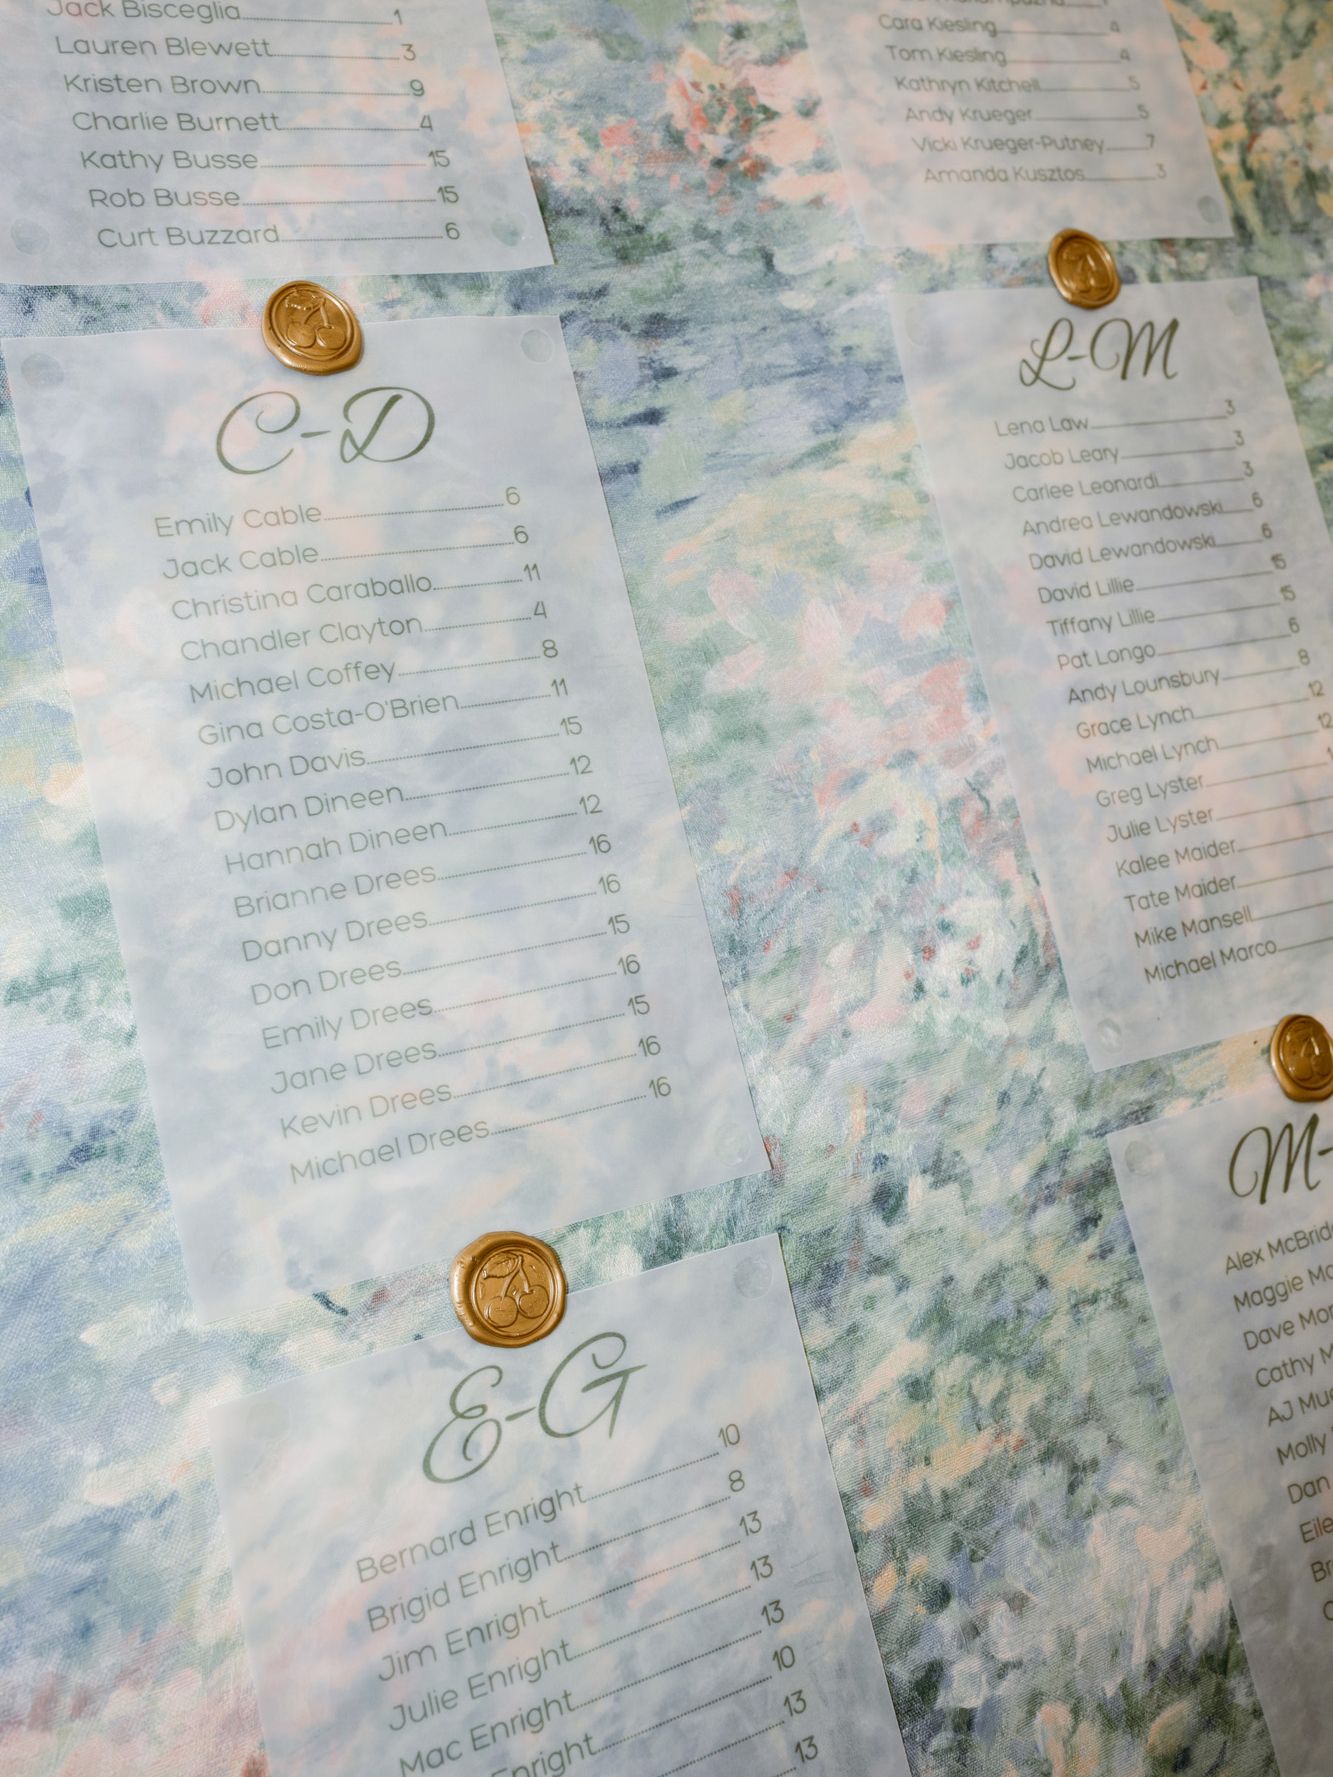 Jack Bisceglia 1
Lauren Blewett 3
Kristen Brown 9
Charlie Burnett 4
Kathy Busse 15
Rob Busse 15
Curt Buzzard 6
C-D
Emily Cable 6
Jack Cable 6
Christina Caraballo 11
Chandler Clayton 4
Michael Coffey 8
Gina Costa-O'Brien 11
John Davis 15
Dylan Dineen 12
Hannah Dineen 12
Brianne Drees 16
Danny Drees 16
Don Drees 15
Emily Drees 16
Jane Drees 15
Kevin Drees 16
Michael Drees 16
E-G
Bernard Enright 10
Brigid Enright 8
Jim Enright 13
Julie Enright 13
Mac Enright 13
10
13
13
Cara Kiesling 4
Tom Kiesling 4
Kathryn Kitchell 5
Andy Krueger 5
Vicki Krueger-Putney 7
Amanda Kusztos 3
L-M
Lena Law 3
Jacob Leary 3
Carlee Leonardi 3
Andrea Lewandowski 6
David Lewandowski 6
David Lillie 15
Tiffany Lillie 15
Pat Longo 6
Andy Lounsbury 8
Grace Lynch 12
Michael Lynch 12
Greg Lyster
Julie Lyster
Kalee Maider
Tate Maider
Mike Mansell
Michael Marco
M-
Alex
Maggie
Dave
Cathy
AJ
Molly
Dan